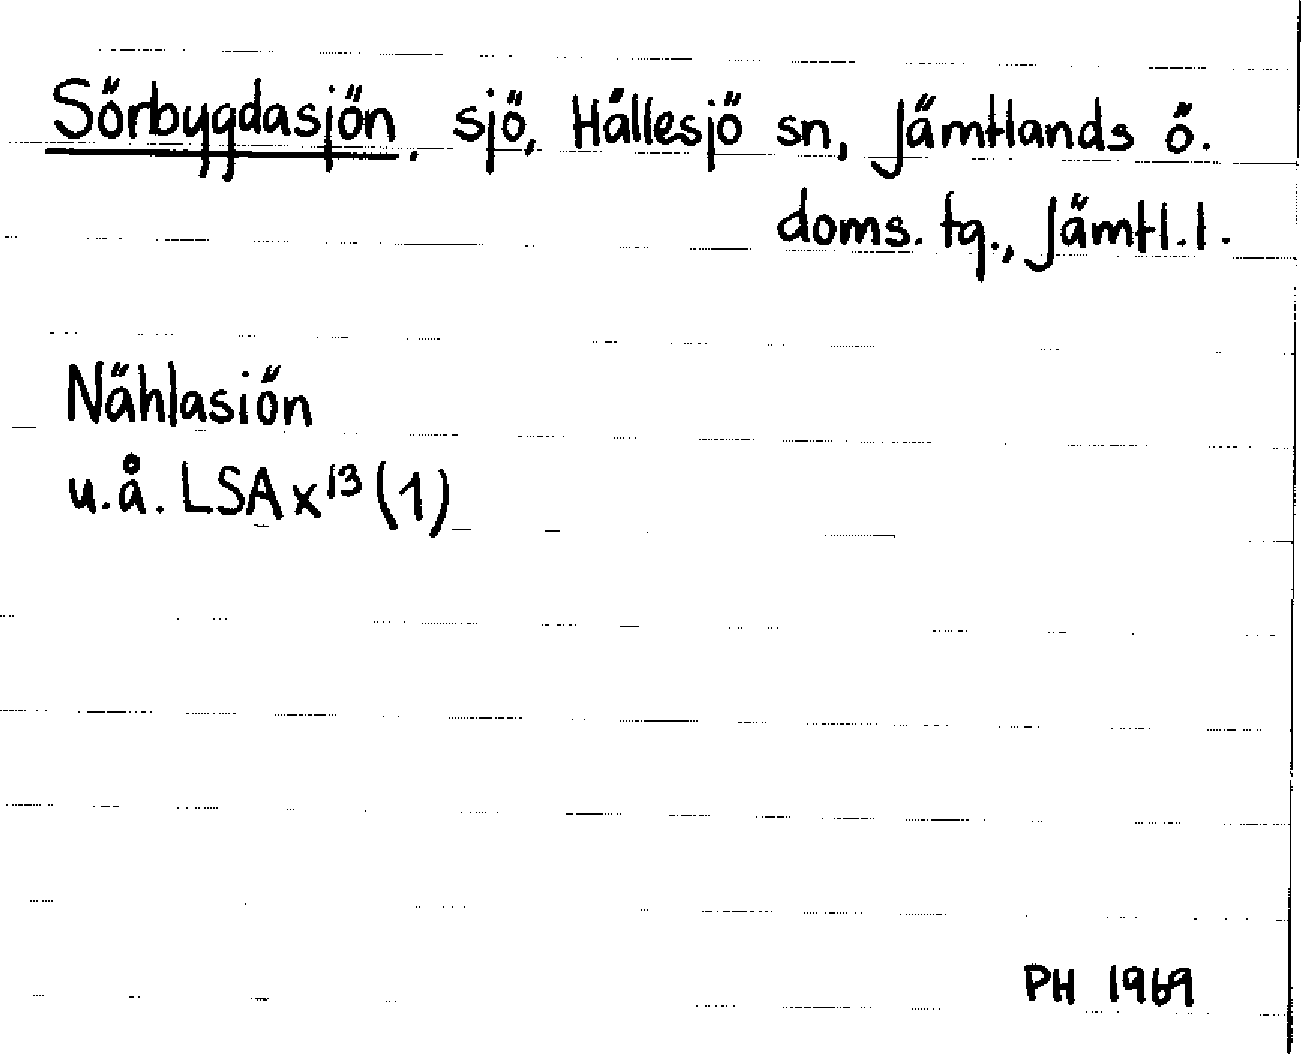 Sörbygdasjön, sjö, Hällesjö sn, Jämtlands ö.
doms. tg., Jämtl.l.
Nählasiön
u.å. LSA x¹³ (1)
PH 1969